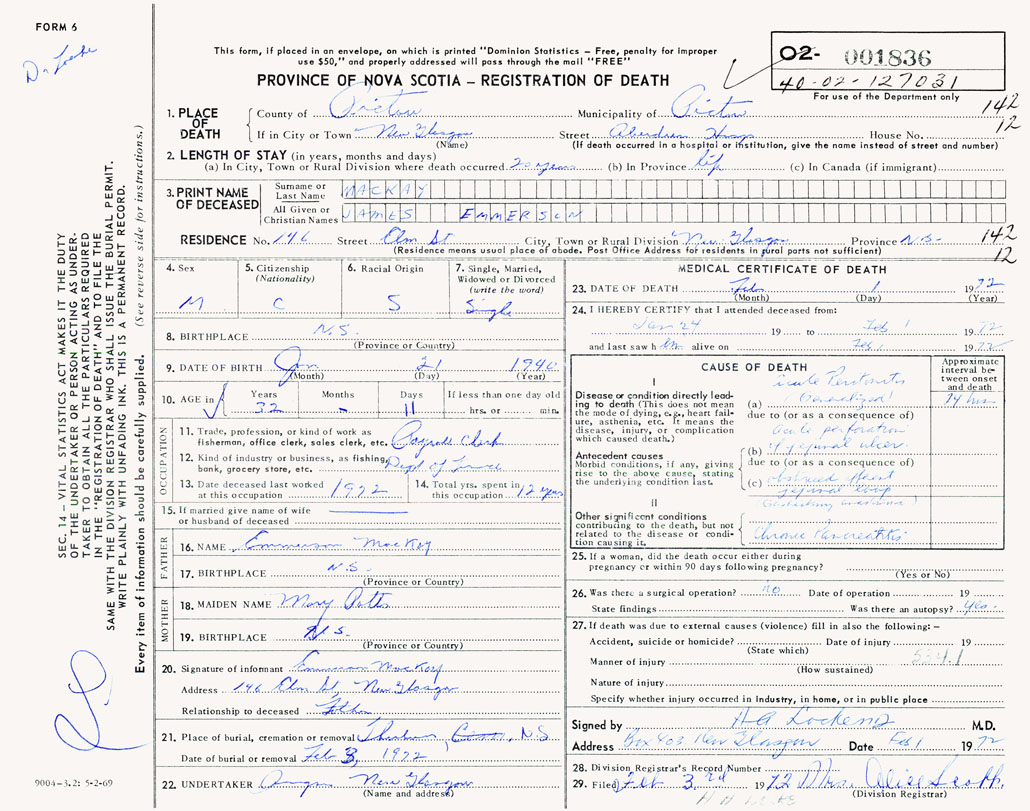 FORM 6
Dr Locke
This form, if placed in an envelope, on which is printed "Dominion Statistics – Free, penalty for improper
use $50," and properly addressed will pass through the mail "FREE"
PROVINCE OF NOVA SCOTIA – REGISTRATION OF DEATH
02- 001836
40-02-127031
For use of the Department only
1. PLACE OF DEATH
County of Pictou Municipality of Pictou 142
If in City or Town New Glasgow Street Aberdeen Hosp House No. 12
(Name) (If death occurred in a hospital or institution, give the name instead of street and number)
2. LENGTH OF STAY (in years, months and days)
(a) In City, Town or Rural Division where death occurred 20 years (b) In Province life (c) In Canada (if immigrant)
3. PRINT NAME OF DECEASED
Surname or Last Name MACKAY
All Given or Christian Names JAMES EMMERSON
RESIDENCE No. 146 Street Elm St City, Town or Rural Division New Glasgow Province N.S. 142
(Residence means usual place of abode. Post Office Address for residents in rural parts not sufficient) 12
4. Sex
M
5. Citizenship
(Nationality)
C
6. Racial Origin
S
7. Single, Married,
Widowed or Divorced
(write the word)
Single
8. BIRTHPLACE N.S.
(Province or Country)
9. DATE OF BIRTH Jan 21 1940
(Month) (Day) (Year)
10. AGE in Years Months Days If less than one day old
32 - 11 hrs. or min.
OCCUPATION
11. Trade, profession, or kind of work as
fisherman, office clerk, sales clerk, etc. Clerk
12. Kind of industry or business, as fishing,
bank, grocery store, etc. Dept of
13. Date deceased last worked
at this occupation 1972
14. Total yrs. spent in
this occupation 12 years
15. If married give name of wife
or husband of deceased
FATHER
16. NAME Emmerson MacKay
17. BIRTHPLACE N.S.
(Province or Country)
MOTHER
18. MAIDEN NAME Mary Potts
19. BIRTHPLACE N.S.
(Province or Country)
20. Signature of informant Emmerson MacKay
Address 146 Elm St, New Glasgow
Relationship to deceased Father
21. Place of burial, cremation or removal , N.S
Date of burial or removal Feb 3, 1972
22. UNDERTAKER New Glasgow
(Name and address)
MEDICAL CERTIFICATE OF DEATH
23. DATE OF DEATH Feb 1 1972
(Month) (Day) (Year)
24. I HEREBY CERTIFY that I attended deceased from:
Jan 24 19 to Feb 1 1972
and last saw him alive on Feb 1 1972
CAUSE OF DEATH
Approximate interval between onset and death
I
Disease or condition directly leading to death (This does not mean the mode of dying, e.g., heart failure, asthenia, etc. It means the disease, injury, or complication which caused death.)
(a) acute Peritonitis
(Generalized) 14 hrs.
due to (or as a consequence of)
acute perforation
Antecedent causes
Morbid conditions, if any, giving rise to the above cause, stating the underlying condition last.
(b) of jejunal ulcer.
due to (or as a consequence of)
(c) obstructed afferent
jejunal loop
II
Other significant conditions
contributing to the death, but not related to the disease or condition causing it.
Chronic Pancreatitis
25. If a woman, did the death occur either during
pregnancy or within 90 days following pregnancy?
(Yes or No)
26. Was there a surgical operation? no Date of operation 19
State findings Was there an autopsy? Yes.
27. If death was due to external causes (violence) fill in also the following: –
Accident, suicide or homicide? Date of injury 19
(State which)
Manner of injury 534.1
(How sustained)
Nature of injury
Specify whether injury occurred in industry, in home, or in public place
Signed by HA Locke MD M.D.
Address Box 403 New Glasgow Date Feb 1 1972
28. Division Registrar's Record Number
29. Filed Feb 3rd 1972 Mrs. Alice Scott.
(Division Registrar)
SEC. 14 – VITAL STATISTICS ACT MAKES IT THE DUTY
OF THE UNDERTAKER OR PERSON ACTING AS UNDER-
TAKER TO OBTAIN ALL THE PARTICULARS REQUIRED
IN THE "REGISTRATION OF DEATH" AND TO FILE THE
SAME WITH THE DIVISION REGISTRAR WHO SHALL ISSUE THE BURIAL PERMIT.
WRITE PLAINLY WITH UNFADING INK. THIS IS A PERMANENT RECORD.
Every item of information should be carefully supplied. (See reverse side for instructions.)
9004-3.2: 5-2-69